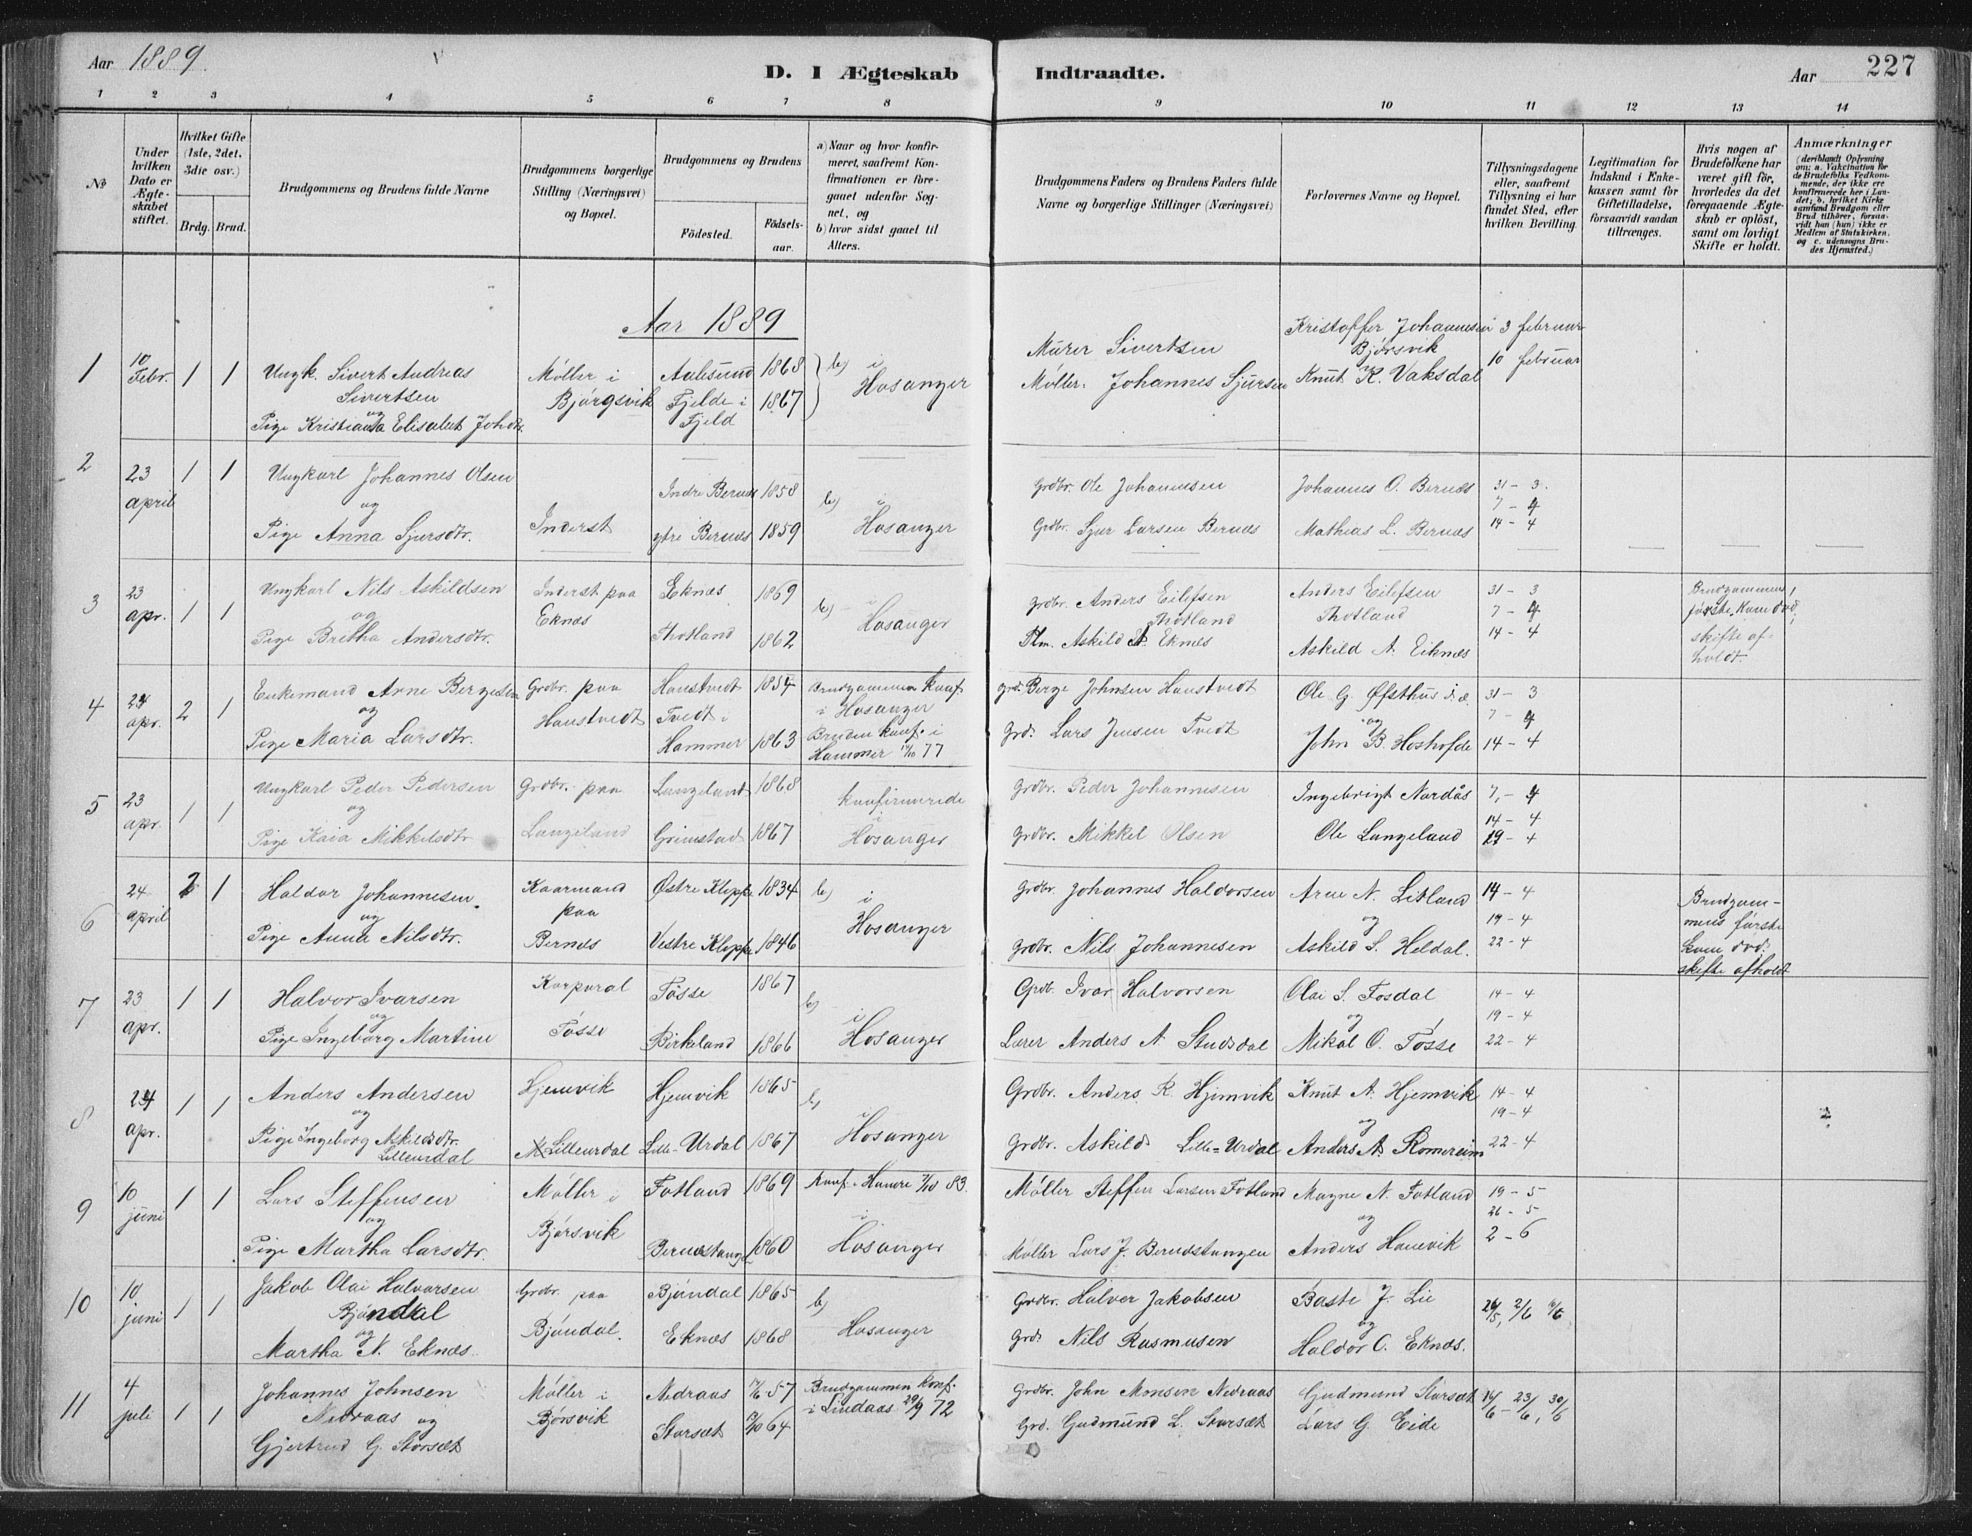 Aar 1889.
D. I Ægteskab Indtraadte.
Aar 227
1 2 3 4 5 6 7 8 9 10 11 12 13 14
No
Under hvilken Dato er Ægteskabet stiftet.
Hvilket Gifte (1ste, 2det, 3die osv.)
Brdg. Brud.
Brudgommens og Brudens fulde Navne
Brudgommens borgerlige Stilling (Næringsvei) og Bopæl.
Brudgommens og Brudens
Födested. Födselsaar.
a) Naar og hvor konfirmeret, saafremt Konfirmationen er foregaaet udenfor Sognet, og
b) hvor sidst gaaet til Alters.
Brudgommens Faders og Brudens Faders fulde Navne og borgerlige Stillinger (Næringsvei)
Forlovernes Navne og Bopæl.
Tillysningsdagene eller, saafremt Tillysning ei har fundet Sted, efter hvilken Bevilling.
Legitimation for Indskud i Enkekassen samt for Giftetilladelse, forsaavidt saadan tiltrænges.
Hvis nogen af Brudefolkene har været gift för, hvorledes da det foregaaende Ægteskab er oplöst, samt om lovligt Skifte er holdt.
Anmærkninger
(deriblandt Oplysning om: a. Vakcination for de Brudefolks Vedkommende, der ikke ere konfirmerede her i Landet; b. hvilket Kirkesamfund Brudgom eller Brud tilhörer, forsaavidt han (hun) ikke er Medlem af Statskirken, og c. udensogns Brudes Hjemsted.)
Aar 1889
1 10 Febr. 1 1 Ungk. Sivert Andreas Sivertsen
og
Pige Kristianna Elisabet Johdtr.
Møller i Bjørgsvik
Aalesund 1868
Fjelde i Fjeld 1867
b) i Hosanger
Murer Sivertsen
Møller. Johannes Sjursen
Kristoffer Johannesen Bjørsvik
Knut K. Vaksdal
3 februar
10 februar
2 23 april 1 1 Ungkarl Johannes Olsen
og
Pige Anna Sjursdtr.
Inderst
Indre Bernes 1858
ytre Bernes 1859
b) i Hosanger
Grdbr. Ole Johannesen
Grdbr. Sjur Larsen Bernæs
Johannes O. Bernæs
Mathias L. Bernæs
31 - 3.
7 - 4
14 - 4
3 23 apr. 1 1 Ungkarl Nils Askildsen
og
Pige Britha Andersdtr.
Inderst paa Eknæs
Eknæs 1869
Thotland 1862
b) i Hosanger
grdbr. Anders Eilefsen Thotland
Plm. Askild A. Eknes
Anders Eilefsen Thotland
Askild A. Eiknæs
31 - 3
7 - 4
14 - 4
Brudgommens første Kone død, skifte afholdt
4 24 apr. 2 1 Enkemand Arne Bergesen
og
Pige Maria Larsdtr.
Grdbr. paa Haustvedt
Haustvedt 1854
Tvedt i Hammer 1863
Brudgommen konf. i Hosanger
Bruden konf. i Hammer 14/10 77
grd. Berge Johnsen Haustvedt
Grd. Lars Jensen Tvedt
Ole G. Øfsthus d. æ.
og
John B. Hoshofde
31 - 3
7 - 4
14 - 4
5 23 apr. 1 1 Ungkarl Peder Pedersen
og
Pige Kaia Mikkelsdtr.
Grdbr. paa Langeland
Langeland 1868
Grimstad 1867
konfirmerede i Hosanger
grdbr. Peder Johannesen
grdbr. Mikkel Olsen
Ingebrigt Nordås
Ole Langeland
7, - 4
14 - 4
19 - 4
6 24 april 2 1 Haldor Johannesen.
og
Pige Anna Nilsdtr.
Kaarmand paa Bernæs
Østre Kleppe 1834
Vestre Kleppe 1846
b) i Hosanger
grdbr. Johannes Haldorsen
grdbr. Nils Johannesen
Arne N. Litland
og
Askild S. Heldal.
14 - 4
19 - 4
22 - 4
Brudgommens første Kone død. skifte afholdt
7 23 apr. 1 1 Halvor Ivarsen
og
Pige Ingeborg Martine
Korporal Tøsse
Tøsse 1867
Birkeland 1866
b) i Hosanger
Grdb. Ivar Halvorsen
Lærer Anders A Studsdal
Olai S. Fosdal
og
Mikal O. Tøsse
14 - 4
19 - 4
22 - 4
8 24 apr. 1 1 Anders Andersen
og
Pige Ingeborg Askildsdtr. Lilleurdal
Hjemvik
Lilleurdal
Hjemvik 1865
Lille-Urdal 1867
b) Hosanger
Grdbr. Anders R. Hjemvik
Grdbr. Askild Lille-Urdal
Knut A. Hjemvik
og
Anders A. Romereim
14 - 4
19 - 4
22 - 4
9 10 juni 1 1 Lars Steffensen
og
Pige Martha Larsdtr.
Møller i Bjørsvik
Fotland 1869
Berndstangen 1860
Konf. i Hamre 7/10 83.
i Hosanger
Møller Steffen Larsen Fotland
Møller Lars J. Berndstangen
Magne N. Fotland
og
Anders Hanevik
19 - 5
26 - 5
2 - 6
10 10 juni 1 1 Jakob Olai Halvorsen Bjøndal
og
Martha N. Eknæs.
Grdbr. paa Bjøndal.
Bjøndal 1865
Eknæs 1868
b) Hosanger
Grdbr. Halvor Jakobsen
grd. Nils Rasmusen
Baste J. Lie
og
Haldor O. Eknæs.
26/5, 2/6
11 4 juli 1 1 Johannes Johnsen Nedraas og
Gjertrud G. Storsæt
Møller i Bjørsvik
Nedraas 57
Storsæt 64
Brudgommen konf. i Lindaas 29/9 72
Grdbr. John Monsen Nedraas
Grd. Gudmund L. Storsæt
Gudmund Storsæt
Lars G. Eide
16/6 - 23/6, 30/6